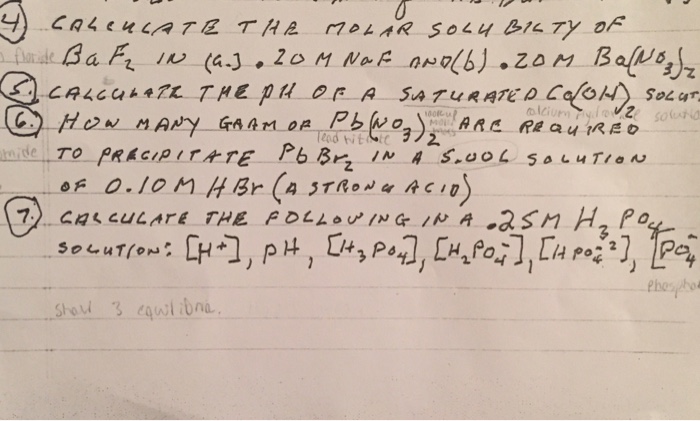 4) CALCULATE THE MOLAR SOLUBILTY OF
BaF2 IN (a.) .20 M NaF AND (b) .20M Ba(NO3)2
5. CALCULATE THE pH OF A SATURATED Ca(OH)2 SOLUT
6. HOW MANY GRAM OF Pb(NO3)2 ARE REQUIRED
TO PRECIPITATE PbBr2 IN A 5.00L SOLUTION
OF 0.10M HBr (A STRONG ACID)
7. CALCULATE THE FOLLOWING IN A .25M H3PO4
SOLUTION: [H+], pH, [H3PO4], [H2PO4-], [HPO4-2], [PO4-
Phospha
Show 3 equilibria.